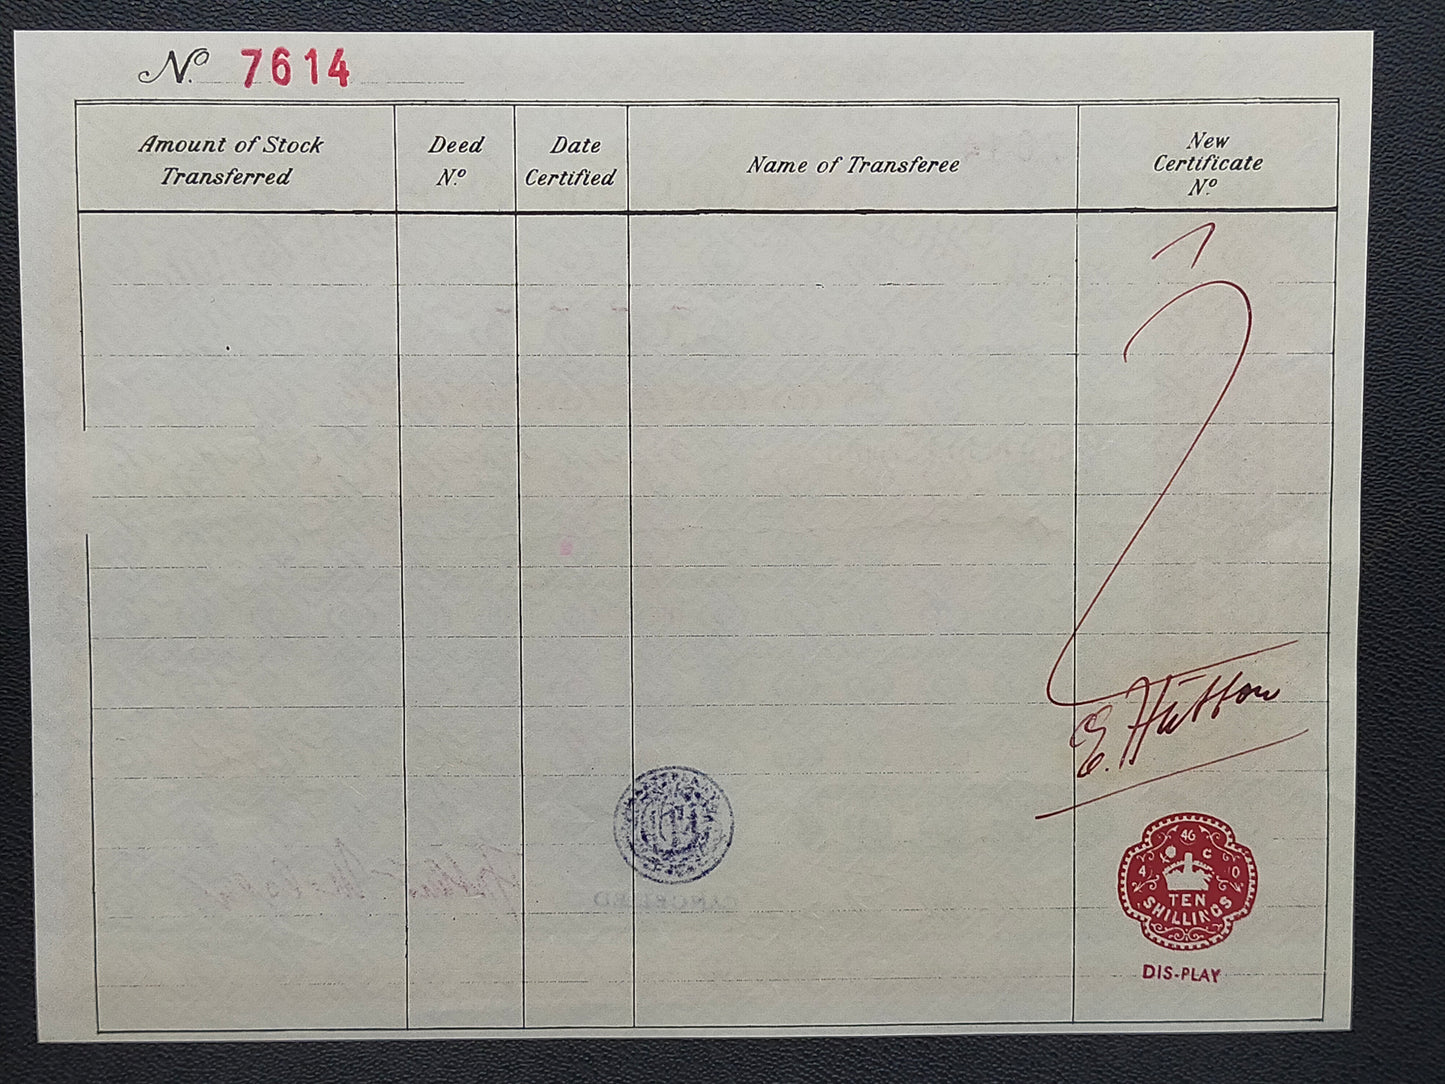 Nº 7614
Amount of Stock
Transferred
Deed
Nº
Date
Certified
Name of Transferee
New
Certificate
Nº
E. Hutton
46
C
4 10
TEN
SHILLINGS
DIS-PLAY
CANCELLED